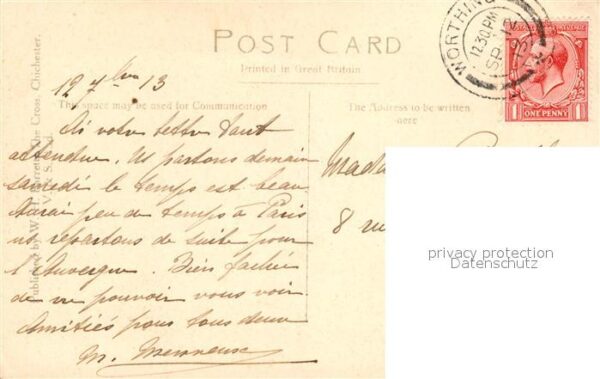 POST CARD
Printed in Great Britain
WORTHING
12.30 PM
SP 12
13
ONE PENNY
1 1
This space may be used for Communication
The Address to be written here
12 7bre 13
Ai votre lettre tant
attendue. Ns partons demain
samedi le temps est beau
Aurai peu de temps à Paris
ns repartons de suite pour
l'Auvergne. Bien fachée
de ne pouvoir vous voir
Amitiés pour tous deux
M.
Mada
8 rue
Published by W. H. Barrett, The Cross, Chichester.
V. & S. Ld.
privacy protection
Datenschutz